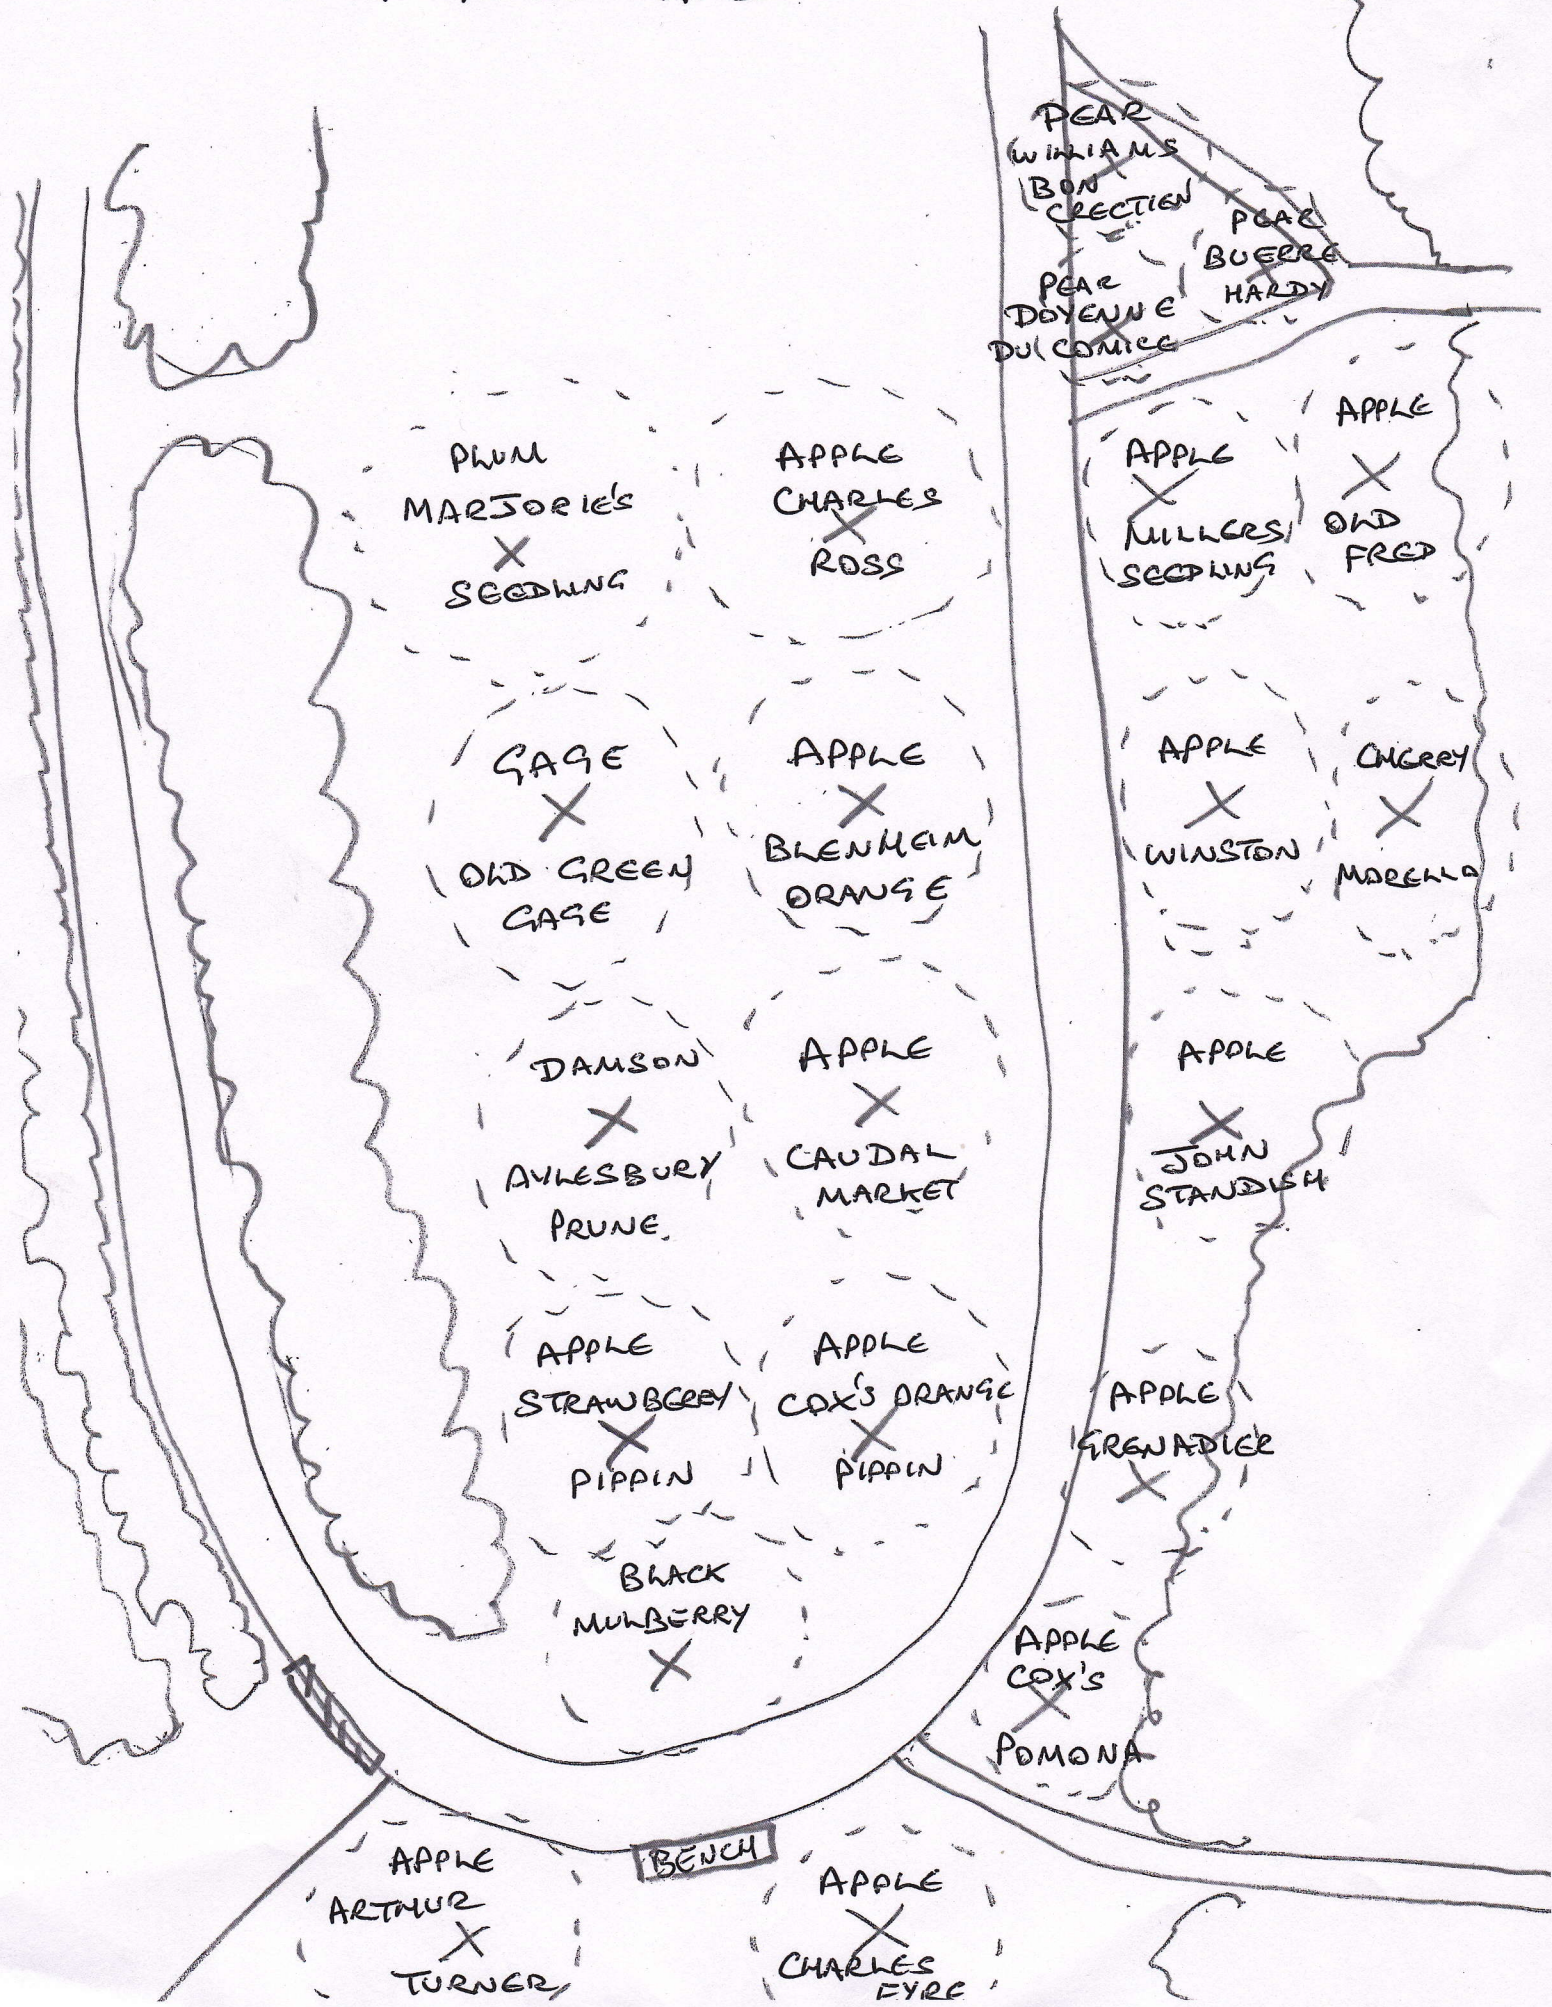 PEAR
WILLIAMS
BON
CRECTIEN
PEAR
BUERRE
HARDY
PEAR
DOYENNE
DU COMICE
PLUM
MARJORIE'S
SEEDLING
APPLE
CHARLES
ROSS
APPLE
MILLERS
SEEDLING
APPLE
OLD
FRED
GAGE
OLD GREEN
GAGE
APPLE
BLENHEIM
ORANGE
APPLE
WINSTON
CHERRY
MORELLO
DAMSON
AYLESBURY
PRUNE.
APPLE
CAUDAL
MARKET
APPLE
JOHN
STANDISH
APPLE
STRAWBERRY
PIPPIN
APPLE
COX'S ORANGE
PIPPIN
APPLE
GRENADIER
BLACK
MULBERRY
APPLE
COX'S
POMONA
APPLE
ARTHUR
TURNER
BENCH
APPLE
CHARLES
EYRE